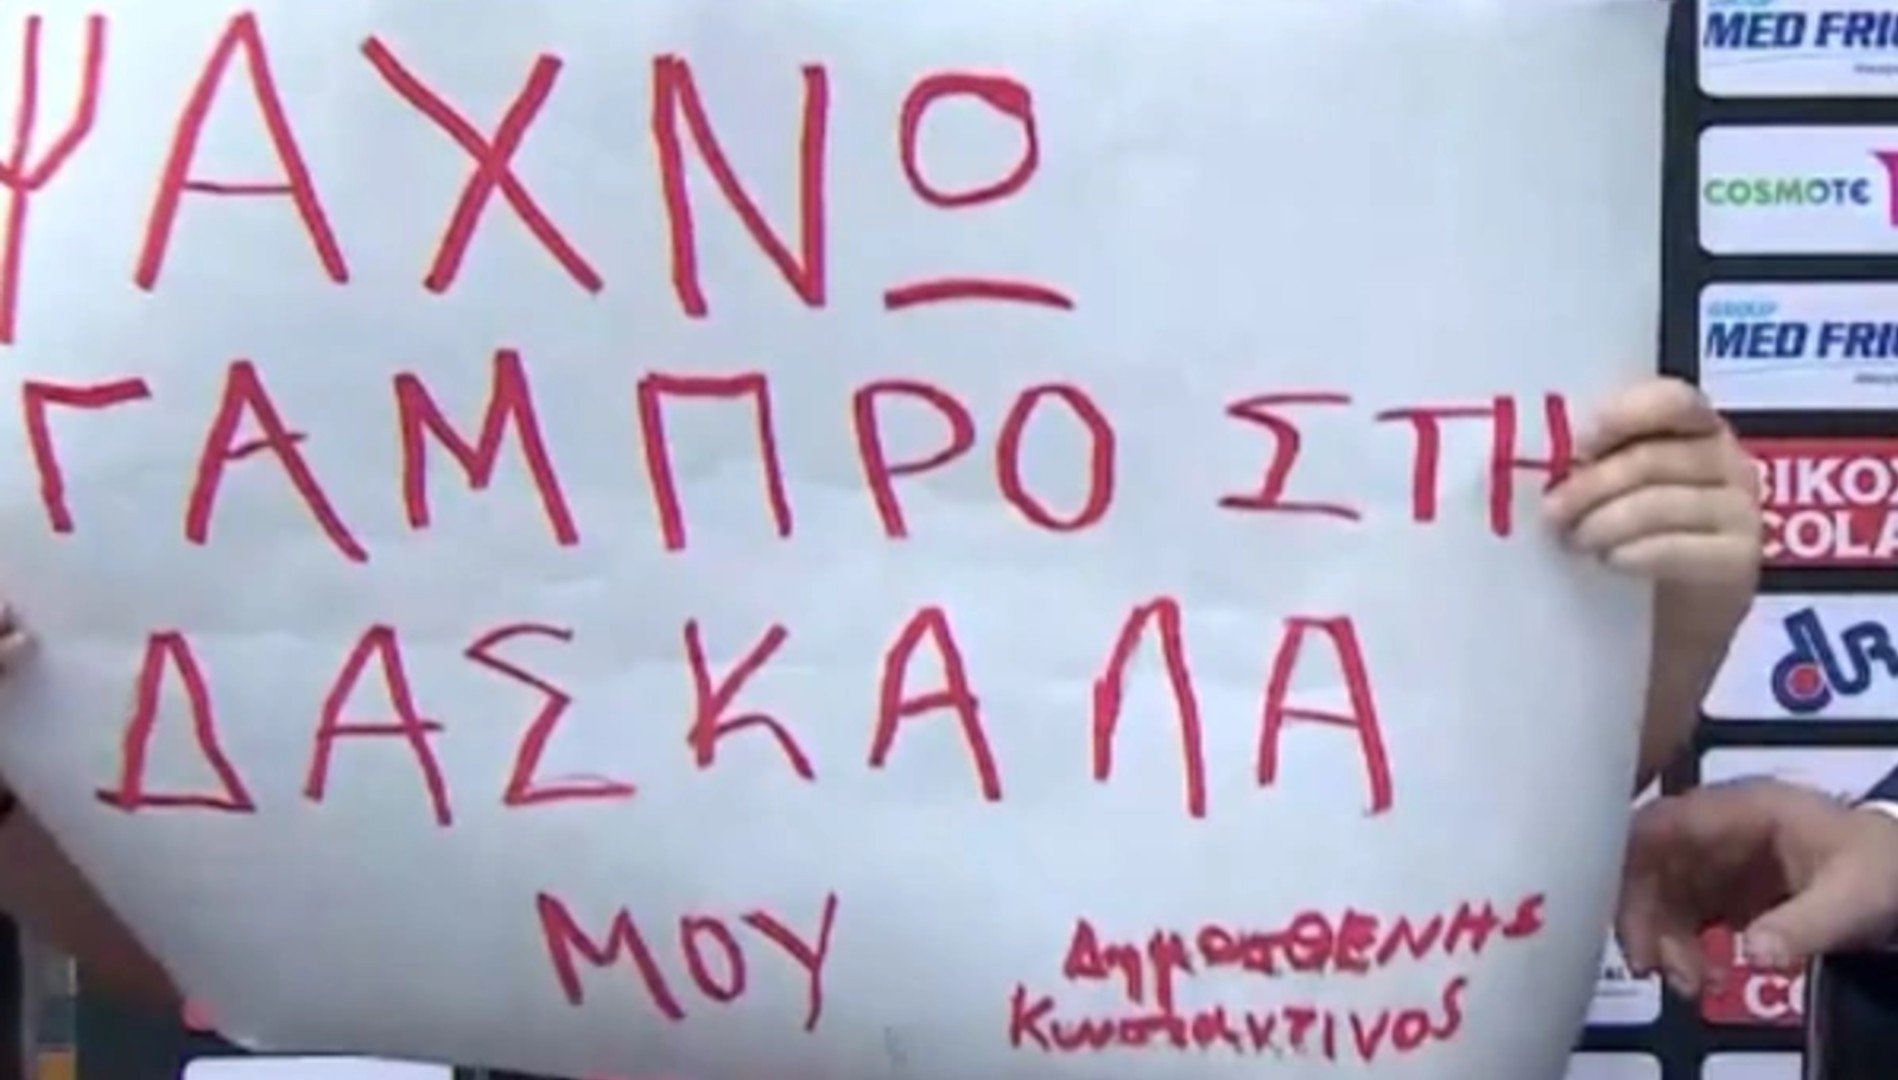 ΨΑΧΝΩ
ΓΑΜΠΡΟ ΣΤΗ
ΔΑΣΚΑΛΑ
ΜΟΥ
ΔημοσθΕΝΗΣ
ΚωνσταντΙνος
MED FRI
COSMOTE
GROUP
MED FRI
ΒΙΚΟΣ
COLA